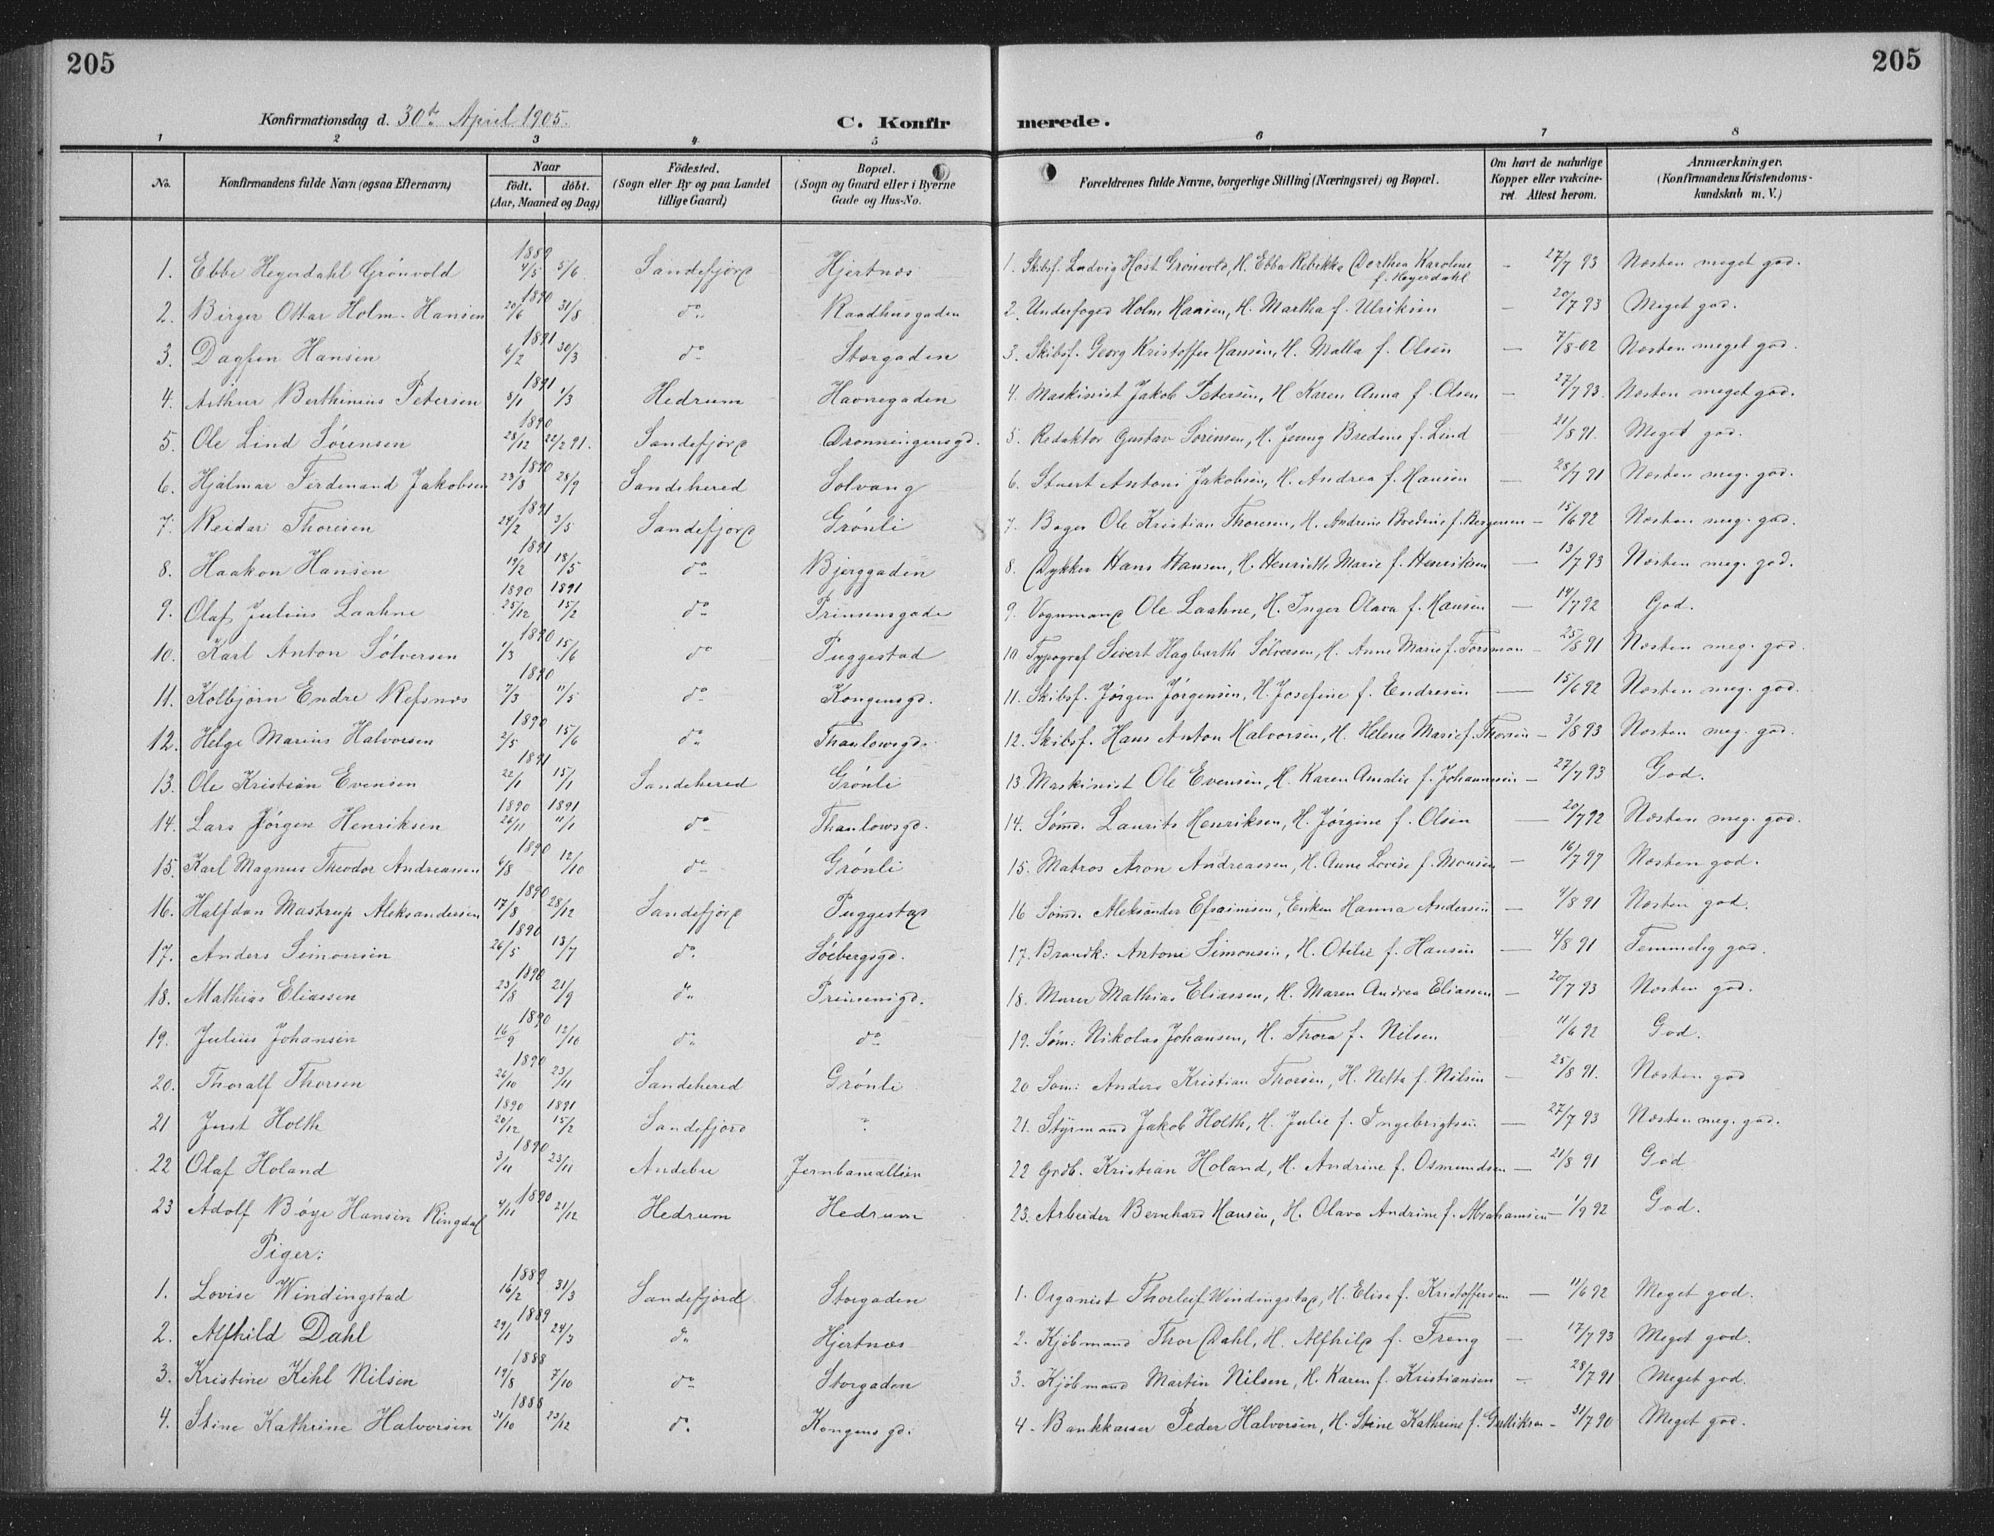 205
205
Konfirmationsdag d. 30te April 1905.
C. Konfir merede.
1 2 3 4 5 6 7 8
No.
Konfirmandens fulde Navn (ogsaa Efternavn)
Naar
født. døbt.
(Aar, Maaned og Dag)
Födested.
(Sogn eller By og paa Landet
tillige Gaard)
Bopæl.
(Sogn og Gaard eller i Byerne
Gade og Hus-No.
Forældrenes fulde Navne, borgerlige Stilling (Næringsvei) og Bopæl.
Om havt de naturlige
Kopper eller vakcine-
ret. Attest herom.
Anmærkninger.
(Konfirmandens Kristendoms-
kundskab m. V.)
1. Ebbe Heyerdahl Grönvold 1889 4/5 5/6 Sandefjord Hjertnæs 1. Skibsf. Ludvig Höst Grönvold, H. Ebba Rebekka Dorthea Karoline f. Heyerdahl - 27/7 93 Næsten meget god.
2. Birger Ottar Holm-Hansen 1890 20/6 31/8 do Raadhusgaden 2. Underfoged Holm Hansen, H. Martha f. Ulriksen 20/7 93 Meget god.
3. Dagfin Hansen 1891 6/2 30/3 do Storgaden 3. Skibsf. Georg Kristoffer Hansen, H. Malla f. Olsen - 7/8-02 Næsten meget god.
4. Arthur Berthinius Petersen 1891 8/1 1/3 Hedrum Havnegaden 4. Maskinist Jakob Petersen, H Karen Anna f. Olsen - 27/7 93. Næsten meget god.
5. Ole Lind Sørensen 1890 28/12 22/2 91. Sandefjord Dronningensgd. 5. Redaktør Gustav Sørensen, H. Jenny Bredine f. Lind 21/8 91. Meget god.
6. Hjalmar Ferdinand Jakobsen 1890 23/8 28/9 Sandehered Solvang 6. Stuert Antoni Jakobsen, H. Andrea f. Hansen - 28/7 91 Næsten meg. god.
7. Reidar Thoresen 1891 24/2 3/5 Sandefjord Grönli 7. Bager Ole Kristian Thoresen, H. Andrine Bredine f. Bergersen - 15/6 92 Næsten meg. god.
8. Haakon Hansen 1891 19/2 18/5 do Bjerggaden 8. Dykker Hans Hansen, H. Henriette Marie f. Henriksen - 13/7 93 Næsten meg. god.
9. Olaf Julius Laahne 1890 25/12 1891 15/2 do Prinsensgade 9. Vognmand Ole Laahne, H. Inger Olava f. Hansen - 14/7 92 God.
10. Karl Anton Sölversen 1890 4/3 15/6 do Puggestad 10. Typograf Sivert Hagbarth Sölversen, H. Anne Marie f. Forsman - 25/8 91 Næsten meg. god.
11. Kolbjörn Endre Refsnæs 1890 7/3 11/5 do Kongensgd. 11. Skibsf. Jörgen Jörgensen, H. Josefine f. Endresen - 15/6 92 Næsten meg. god.
12. Helge Marius Halvorsen 1890 2/5 15/6 do Thaulowsgd. 12. Skibsf. Hans Anton Halvorsen, H. Helene Marie f. Thorsen - 3/8 93 Næsten meg. god.
13. Ole Kristian Evensen 1891 22/1 15/1 Sandehered Grönli 13. Maskinist Ole Evensen, H. Karen Amalie f. Johannesen - 27/7 93 God.
14. Lars Jörgen Henriksen 1890 26/11 1891 11/1 do Thaulowsgd. 14. Sömd. Laurits Henriksen, H. Jörgine f. Olsen - 20/7 92 Næsten meg. god.
15. Karl Magnus Theodor Andreassen 1890 6/8 12/10 do Grönli 15. Matros Aron Andreassen, H. Anne Lovise f. Monsen - 16/7 97 Næsten god.
16. Halfdan Mastrup Aleksandersen 1890 17/8 28/12 Sandefjord Puggestad 16 Sömd. Aleksander Efraimsen, Enken Hanna Andersen - 4/8 91 Næsten god.
17. Anders Simonsen 1890 26/5 13/7 do Söebergsgd. 17. Brandk. Antoni Simonsen, H. Otilie f. Hansen - 4/8 91 Temmelig god.
18. Mathias Eliassen 1890 23/8 21/9 do Prinsensgd. 18. Murer Mathias Eliassen, H. Maren Andrea Eliassen - 20/7 93 Næsten god.
19. Julius Johansen 1890 16/9 12/10 do do 19. Söm: Nikolas Johansen, H. Thora f. Nilsen 11/6 92 God.
20. Thoralf Thorsen 1890 26/10 23/11 Sandehered Grönli 20 Söm: Anders Kristian Thorsen, H. Netta f. Nilsen - 25/8 91. Næsten god
21 Just Holth 1890 20/12 1891 15/2 Sandefjord " 21. Styrmand Jakob Holth, H. Julie f. Ingebrigtsen - 27/7 93 Næsten meg. god.
22 Olaf Holand 1890 3/11 23/11 Andebu Jernbanealleen 22 Grdb. Kristian Holand, H. Andrine f. Osmundsen - 21/8 91 God
23 Adolf Böye Hansen Ringdal 1890 4/11 21/12 Hedrum Hedrum 23. Arbeider Bernhard Hansen, H. Olava Andrine f. Abrahamsen - 1/9 92 God.
Piger:
1. Lovise Windingstad 1889 16/2 31/3 Sandefjord Storgaden 1. Organist Thorleif Windingstad, H. Elise f. Kristoffersen - 11/6 92 Meget god.
2. Alfhild Dahl 1889 29/1 24/3 do Hjertnæs 2. Kjöbmand Thor Dahl, H. Alfhild f. Freng - 17/7 93 Meget god.
3. Kristine Kihl Nilsen 1888 19/8 7/10 do Storgaden 3. Kjöbmand Martin Nilsen, H. Karen f. Kristiansen - 28/7 91 Meget god.
4. Stine Kathrine Halvorsen 1888 31/10 23/12 do Kongensgd. 4. Bankkasser Peder Halvorsen, H. Stine Kathrine f. Gulliksen - 31/7 90 Meget god.